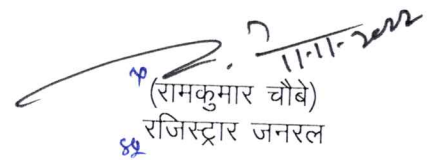 11-11-2022
(रामकुमार चौबे)
रजिस्ट्रार जनरल